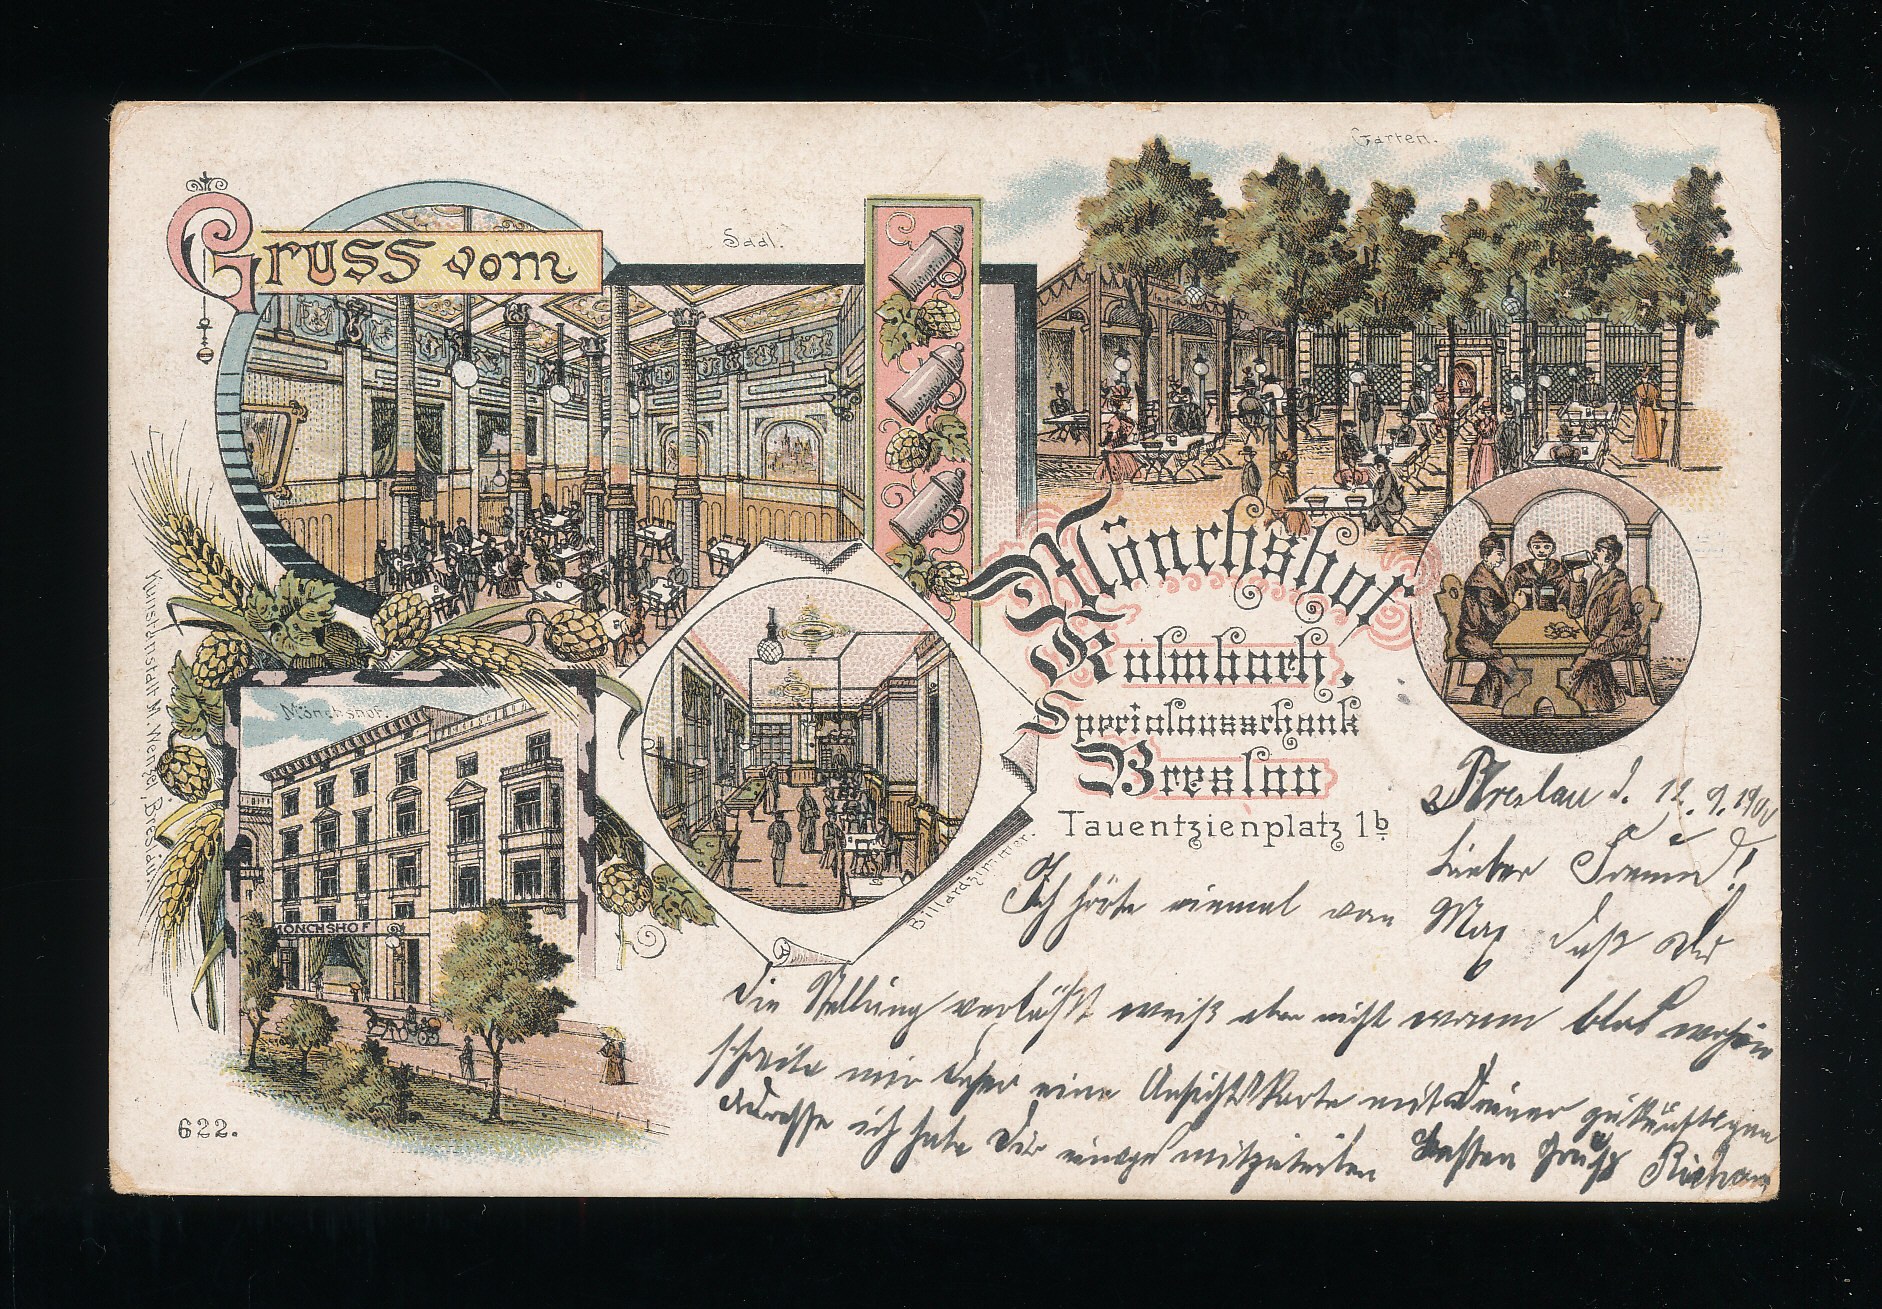 Garten.
Gruss vom
Saal.
Mönchshof
Kulmbach.
Specialausschank
Breslau
Tauentzienplatz 1b
Mönchshof.
MÖNCHSHOF
Billardzimmer.
Kunstanstalt M. Wenzel, Breslau.
622.
Breslau d. 12. 9. 1900
Lieber Freund!
Ich hörte einmal von Max daß Du
die Stellung verläßt weiß aber nicht wann blos wohin
schreibe mir daher eine Ansichtskarte mit Deiner zukünftigen
Adresse ich habe Dir einiges mitzuteilen Besten Gruß Richard